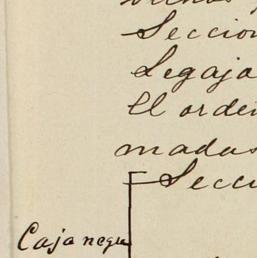 Seccion
Legajo
El orden
madas
Secci
Caja negra